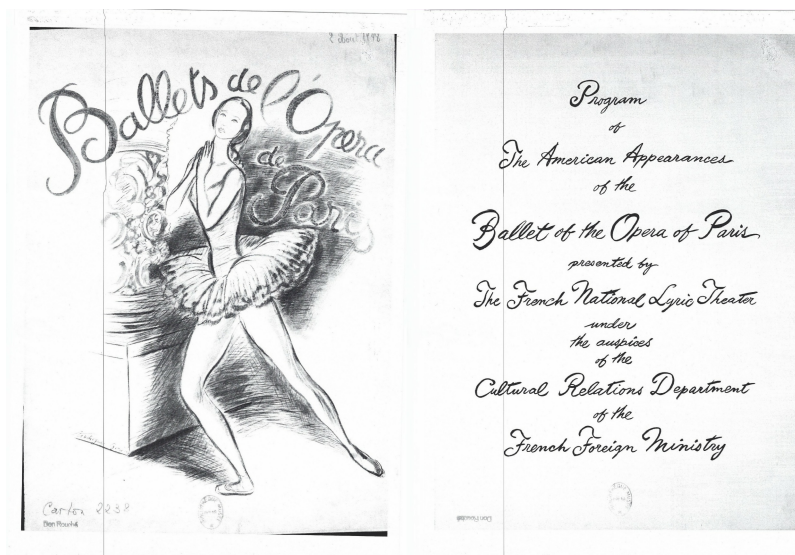 Ballets de l'Opéra
de
Paris
Carton 2238
Program
of
The American Appearances
of the
Ballet of the Opera of Paris
presented by
The French National Lyric Theater
under
the auspices
of the
Cultural Relations Department
of the
French Foreign Ministry